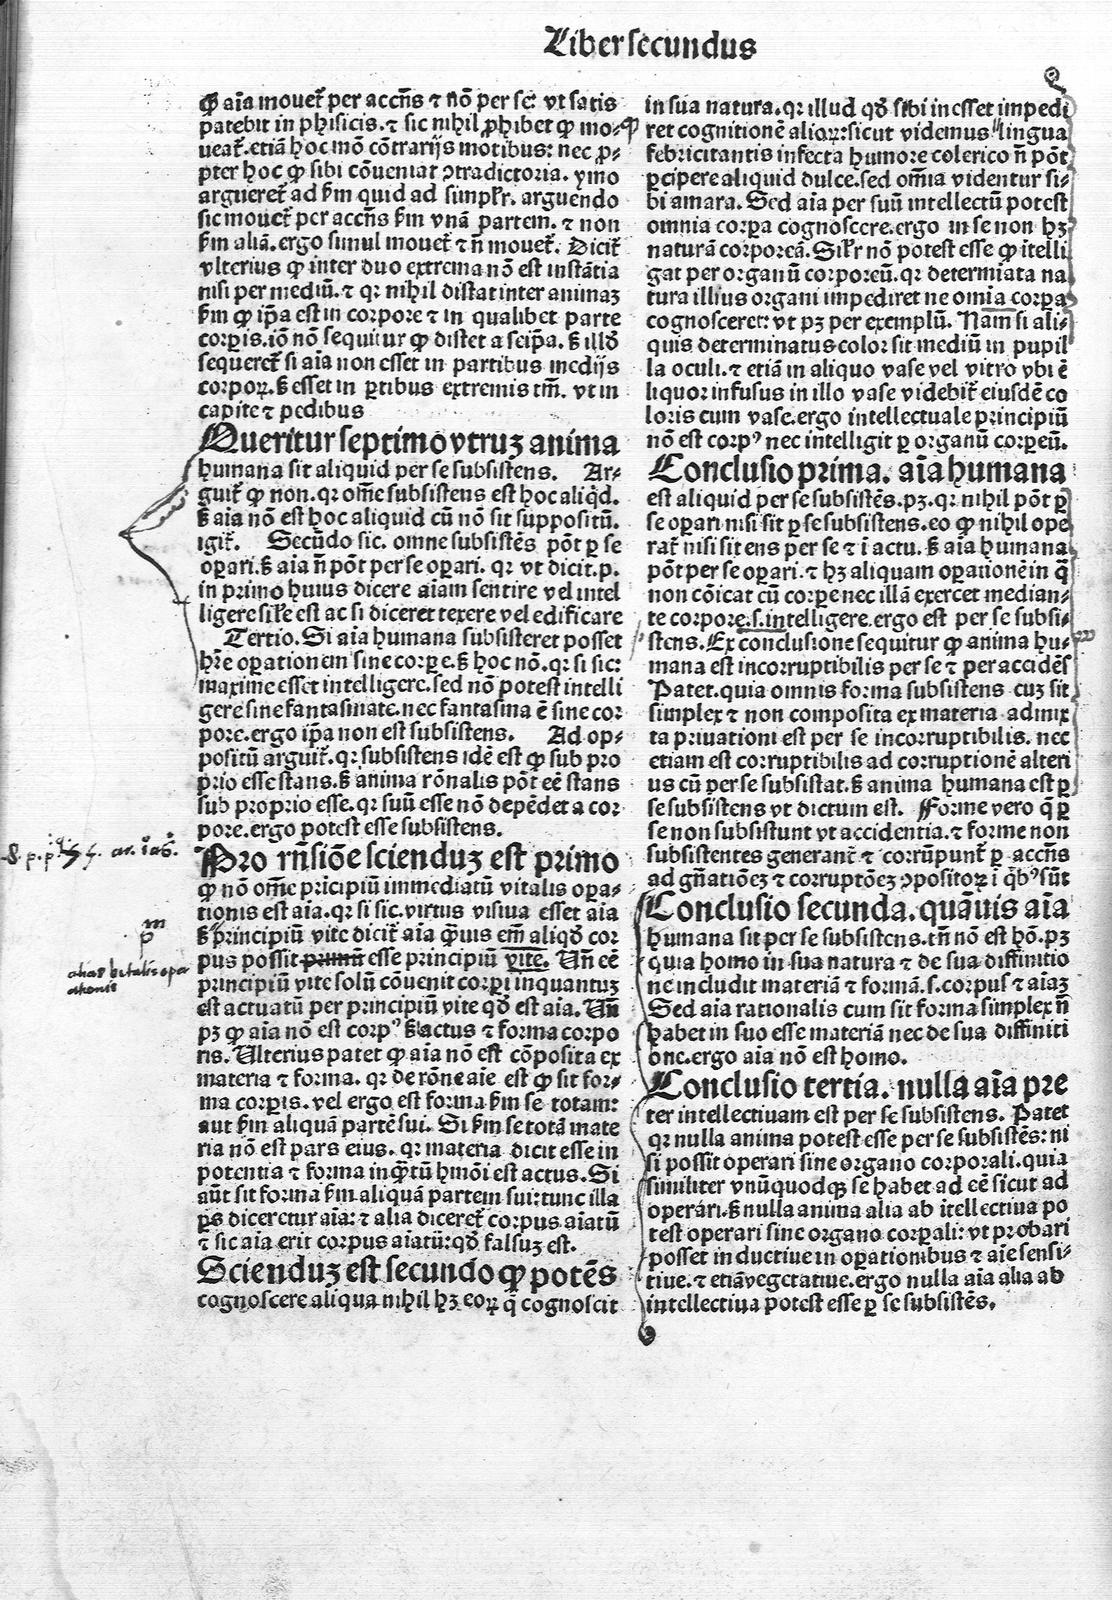 Liber secundus
ꝙ aīa mouet᷑ per accn̄s ⁊ nō per se: vt satis
patebit in phisicis. ⁊ sic nihil ꝓhibet ꝙ mo-
ueat᷑. etiā hoc mō cōtrarijs motibus: nec ꝓ-
pter hoc ꝙ sibi cōueniat ꝯtradictoria. ymo
argueret᷑ ad ẜm quid ad simplr̄. arguendo
sic mouet᷑ per accn̄s ẜm vnā partem. ⁊ non
ẜm aliā. ergo simul mouet᷑ ⁊ n̄ mouet᷑. Dicit᷑
vlterius ꝙ inter duo extrema nō est instātia
nisi per mediū. ⁊ qr nihil distat inter animaꝫ
ẜm ꝙ ip̄a est in corpore ⁊ in qualibet parte
corꝑis. iō nō sequitur ꝙ distet a seip̄a. ẜ illd̄
sequeret᷑ si aīa non esset in partibus medijs
corpoꝝ. ẜ esset in ꝑtibus extremis tm̄. vt in
capite ⁊ pedibus
Queritur septimo vtruꝫ anima
humana sit aliquid per se subsistens. Ar-
guit᷑ ꝙ non. qr om̄e subsistens est hoc aliqd̄.
ẜ aīa nō est hoc aliquid cū nō sit suppositū.
igit᷑. Secūdo sic. omne subsistēs pōt ꝑ se
oꝑari. ẜ aīa n̄ pōt per se oꝑari. qr vt dicit. p.
in primo huius dicere aīam sentire vel intel
ligere sil̄e est ac si diceret texere vel edificare
Tertio. Si aīa humana subsisteret posset
hr̄e oꝑationem sine corꝑe. ẜ hoc nō. qr si sic:
maxime esset intelligere. sed nō potest intelli
gere sine fantasmate. nec fantasma ē sine cor
pore. ergo ip̄a non est subsistens. Ad op-
positū arguit᷑. qr subsistens idē est ꝙ sub pro
prio esse stans. ẜ anima rōnalis pōt eē stans
sub proprio esse. qr suū esse nō depēdet a cor
pore. ergo potest esse subsistens.
Pro rn̄siōe scienduꝫ est primo
ꝙ nō om̄e pricipiū immediatū vitalis oꝑa-
tionis est aīa. qr si sic. virtus visiua esset aīa
ẜ principiū vite dicit᷑ aīa q̄uis em̄ aliqd̄ cor
pus possit primū esse principiū vite. Un̄ eē
principiū vite solū cōuenit corꝑi inquantuꝫ
est actuatū per principiū vite qd̄ est aīa. Un̄
pꝫ ꝙ aīa nō est corpꝰ ẜ actus ⁊ forma corpo
ris. Ulterius patet ꝙ aīa nō est cōposita ex
materia ⁊ forma. qr de rōne aīe est ꝙ sit for-
ma corꝑis. vel ergo est forma ẜm se totam:
aut ẜm aliquā partē sui. Si ẜm se totā mate
ria nō est pars eius. qr materia dicit esse in
potentia ⁊ forma inq̄tū hmōi est actus. Si
aūt sit forma ẜm aliquā partem sui: tunc illa
ꝑs diceretur aīa: ⁊ alia diceret᷑ corpus aīatū
⁊ sic aīa erit corpus aīatū: qd̄ falsuꝫ est.
Scienduꝫ est secundo ꝙ potēs
cognoscere aliqua nihil hꝫ eoꝝ q̄ cognoscit
in sua natura. qr illud qd̄ sibi inesset impedi
ret cognitionē alioꝝ: sicut videmus lingua
febricitantis infecta humore colerico n̄ pōt
ꝑcipere aliquid dulce. sed om̄ia videntur si-
bi amara. Sed aīa per suū intellectū potest
omnia corꝑa cognoscere. ergo in se non hꝫ
naturā corporeā. Silr̄ nō potest esse ꝙ itelli
gat per organū corporeū. qr determiata na
tura illius organi impediret ne omia corꝑa
cognosceret: vt pꝫ per exemplū. Nam si ali-
quis determinatus color sit mediū in pupil
la oculi. ⁊ etiā in aliquo vase vel vitro vbi ē
liquor infusus in illo vase videbit᷑ eiusdē co
loris cum vase. ergo intellectuale principiū
nō est corpꝰ nec intelligit ꝑ organū corꝑeū.
Conclusio prima. aīa humana
est aliquid per se subsistēs. pꝫ. qr nihil pōt ꝑ
se oꝑari nisi sit ꝑ se subsistens. eo ꝙ nihil ope
rat᷑ nisi sit ens per se ⁊ i actu. ẜ aīa humana
pōt per se oꝑari. ⁊ hꝫ aliquam oꝑationē in q̄
non cōicat cū corꝑe nec illā exercet median-
te corpore. s. intelligere. ergo est per se subsi-
stens. Ex conclusione sequitur ꝙ anima hu-
mana est incorruptibilis per se ⁊ per accidēs
Patet. quia omnis forma subsistens cuꝫ sit
simplex ⁊ non composita ex materia admix
ta priuationi est per se incorruptibilis. nec
etiam est corruptibilis ad corruptionē alteri
us cū per se subsistat. ẜ anima humana est ꝑ
se subsistens vt dictum est. Forme vero q̄ ꝑ
se non subsistunt vt accidentia. ⁊ forme non
subsistentes generant᷑ ⁊ corrūpunt᷑ ꝑ accn̄s
ad gn̄atiōeꝫ ⁊ corruptōeꝫ ꝯpositoꝝ i qb̄ꝰ sūt
Conclusio secunda. quāuis aīa
humana sit per se subsistens. tn̄ nō est hō. pꝫ
quia homo in sua natura ⁊ de sua diffinitio
ne includit materiā ⁊ formā. s. corpus ⁊ aīaꝫ
Sed aīa rationalis cum sit forma simplex n̄
habet in suo esse materiā nec de sua diffiniti
one. ergo aīa nō est homo.
Conclusio tertia. nulla aīa pre
ter intellectiuam est per se subsistens. Patet
qr nulla anima potest esse per se subsistēs: ni
si possit operari sine organo corporali. quia
similiter vnūquodqꝫ se habet ad eē sicut ad
operari. ẜ nulla anima alia ab itellectiua po
test operari sine organo corꝑali: vt probari
posset inductiue in oꝑationibus ⁊ aīe sensi-
tiue. ⁊ etiā vegetatiue. ergo nulla aīa alia ab
intellectiua potest esse ꝑ se subsistēs.
alias vitalis oper
ationis